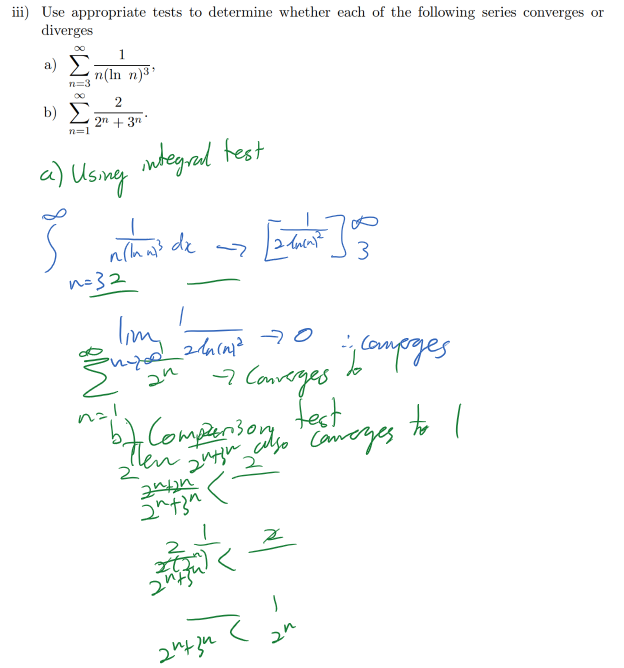 iii) Use appropriate tests to determine whether each of the following series converges or
diverges
a) ∞ ∑ n=3 1 / n(ln n)³,
b) ∞ ∑ n=1 2 / 2ⁿ + 3ⁿ.
a) Using integral test
∞ ∫ n=3 2 1 / n(ln n)³ dx → [1 / 2 ln(n)²] ∞ 3
lim n→∞ 1 / 2 ln(n)² → 0 ∴ converges
∞ ∑ n=1 1 / 2ⁿ → Converges to
b) Comparison test
then 2 / 2ⁿ+3ⁿ also converges to 1
2 / 2ⁿ+3ⁿ < 2
2 / 2ⁿ+3ⁿ < 2
2ⁿ+3ⁿ < 1 / 2ⁿ